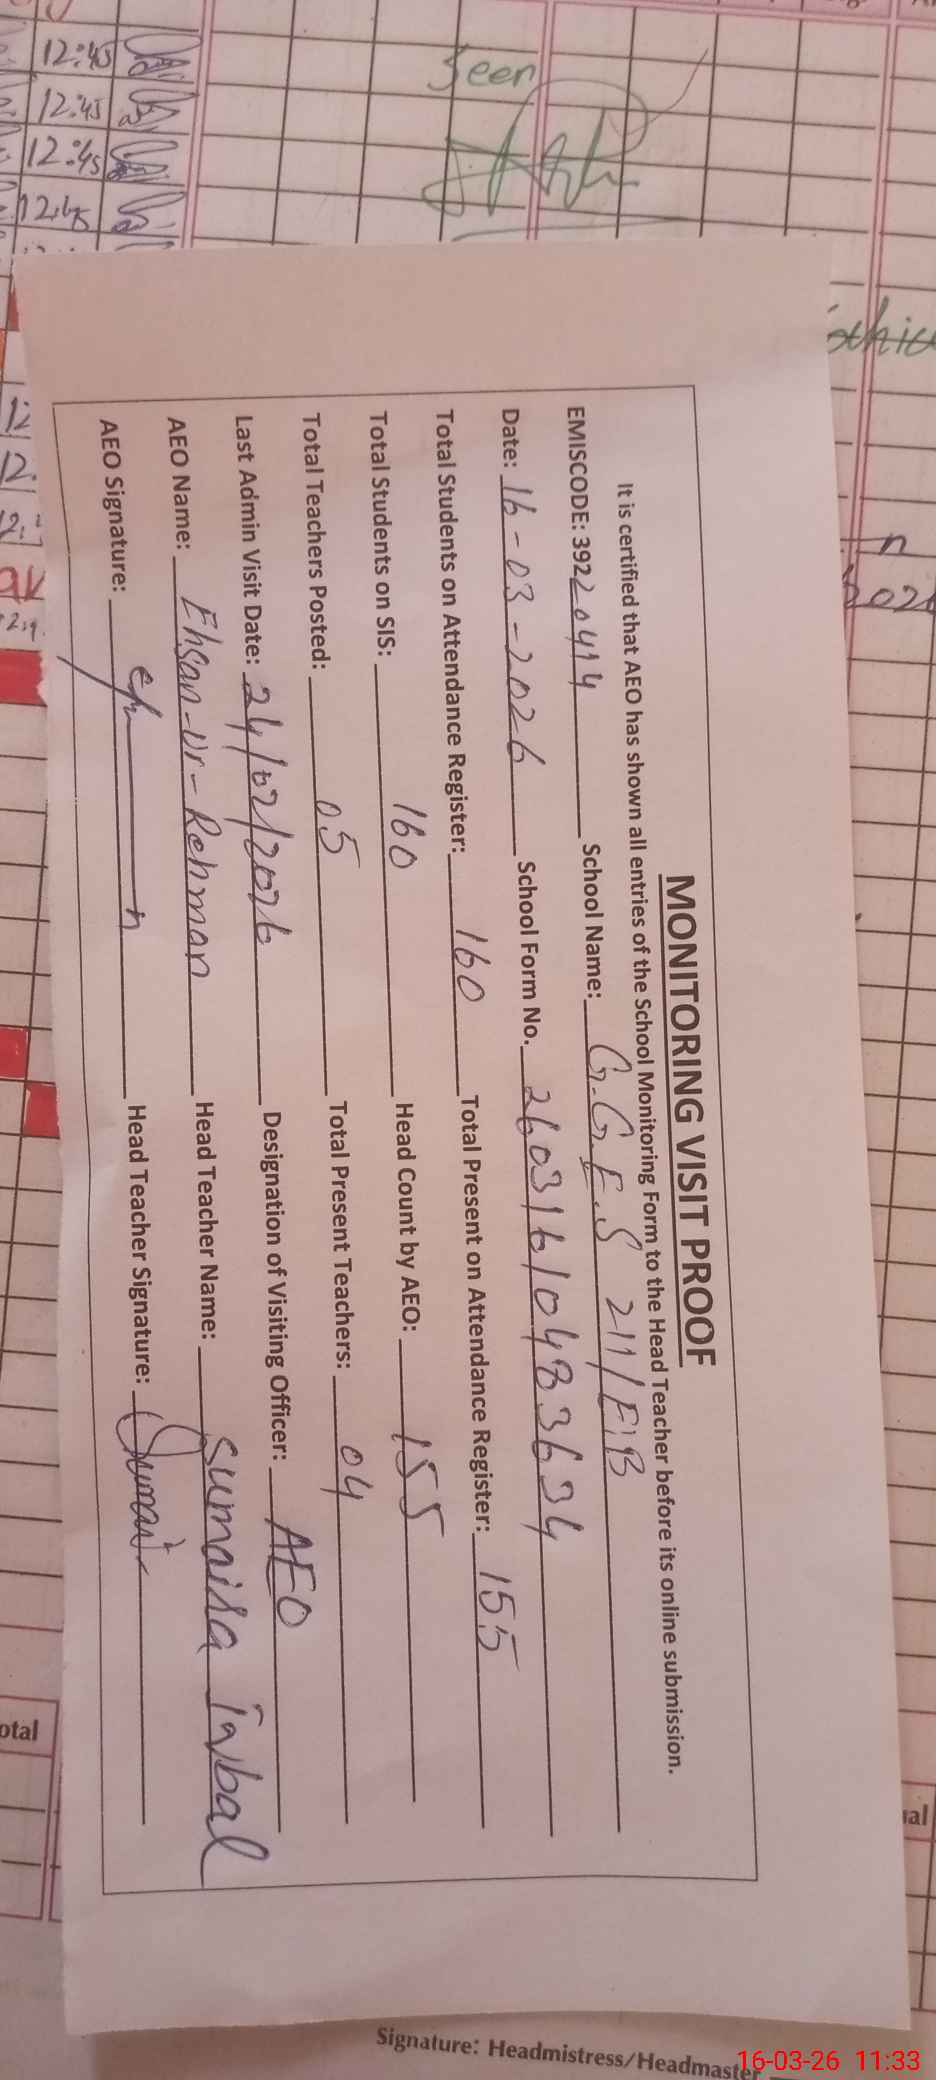 12:45
12:45
12:45
12:45
Seen
MONITORING VISIT PROOF
It is certified that AEO has shown all entries of the School Monitoring Form to the Head Teacher before its online submission.
EMISCODE: 39220414 School Name: G.G.E.S 211/E.B
Date: 16-03-2026 School Form No. 26031610483634
Total Students on Attendance Register: 160 Total Present on Attendance Register: 155
Total Students on SIS: 160 Head Count by AEO: 155
Total Teachers Posted: 05 Total Present Teachers: 04
Last Admin Visit Date: 24/02/2026 Designation of Visiting Officer: AEO
AEO Name: Ehsan-ur-Rehman Head Teacher Name: Sumaira Iqbal
AEO Signature: Head Teacher Signature:
otal
Signature: Headmistress/Headmaster
16-03-26 11:33